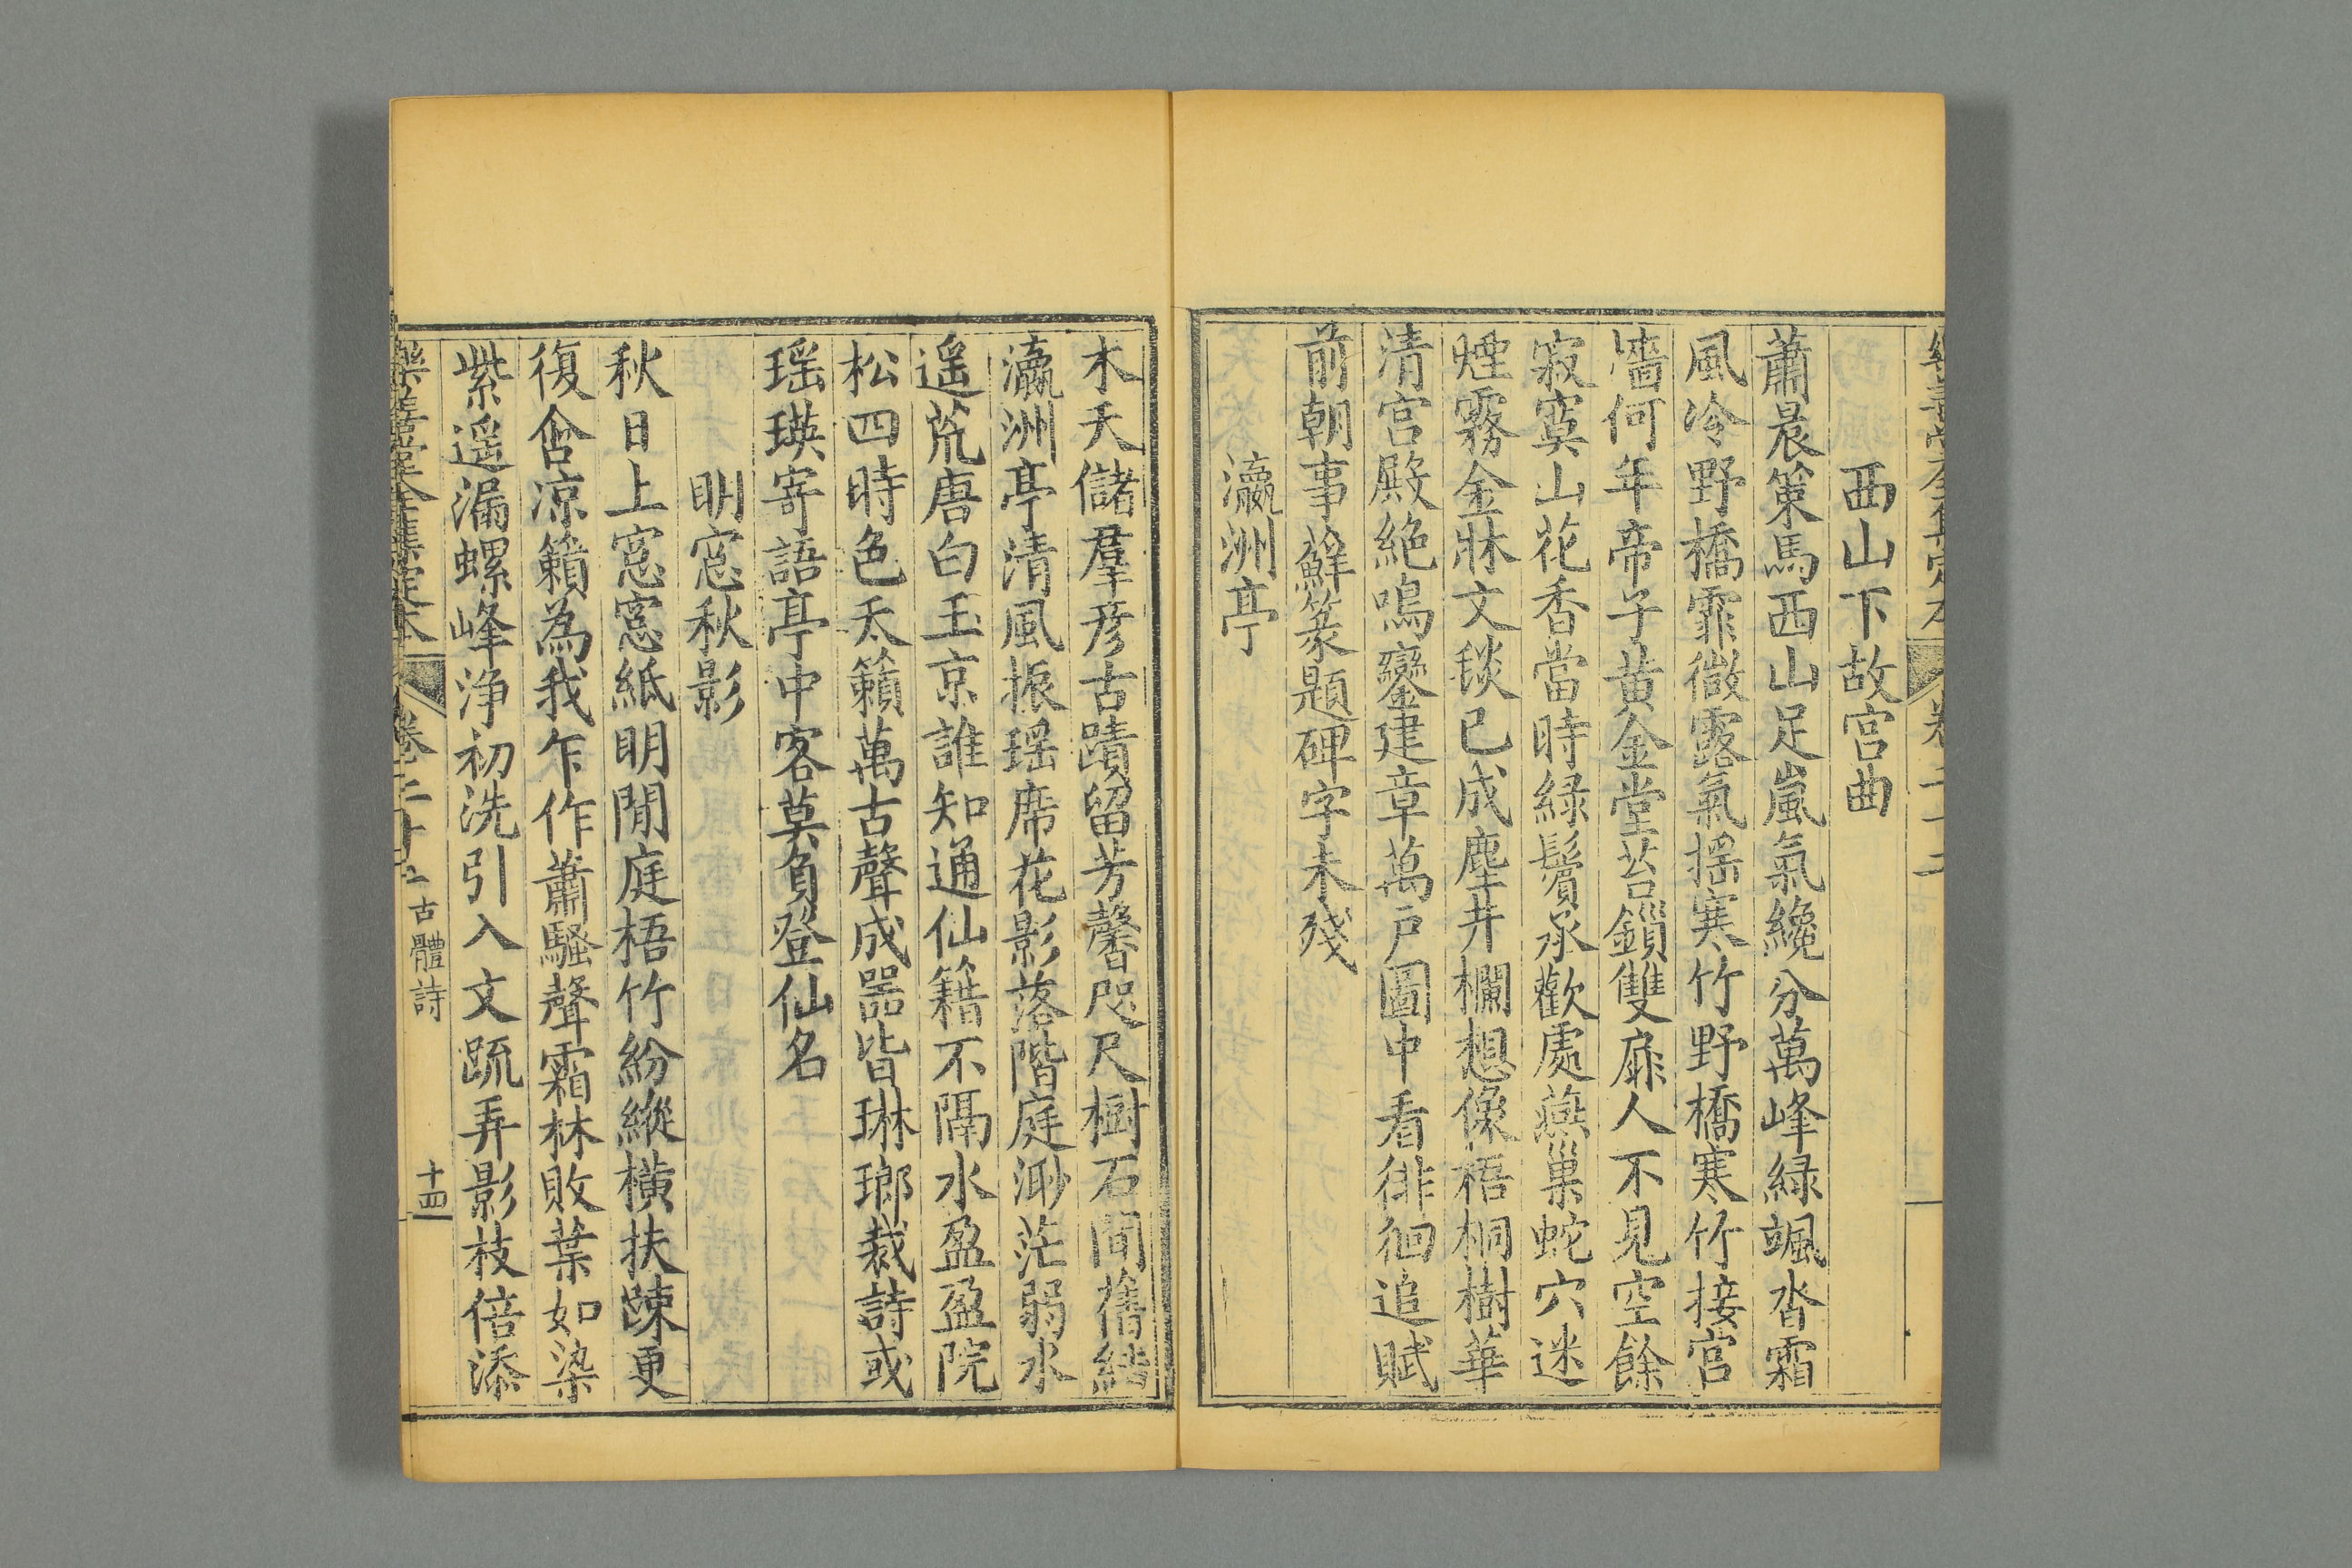 樂善堂全集定本 卷二十二
西山下故宮曲
蕭晨策馬西山足嵐氣纔分萬峰緑颯沓霜
風冷野橋霏微露氣揺寒竹野橋寒竹接宮
牆何年帝子黄金堂苔鎻雙扉人不見空餘
寂寞山花香當時緑鬢承歡處燕巢蛇穴迷
煙霧金牀文毯已成塵井欄想像梧桐樹華
清宮殿絶鳴鑾建章萬戸圖中看徘徊追賦
前朝事蘚篆題碑字未殘
瀛洲亭
木天儲羣彦古蹟留芳馨咫尺樹石間舊結
瀛洲亭清風振瑶席花影落階庭渺茫弱水
遥荒唐白玉京誰知通仙籍不隔水盈盈院
松四時色天籟萬古聲成器皆琳瑯裁詩或
瑶瑛寄語亭中客莫負登仙名
明窓秋影
秋日上窓窓紙明閒庭梧竹紛縱横扶踈更
復含凉籟為我乍作蕭騷聲霜林敗葉如染
紫遥漏螺峰浄初洗引入文疏弄影枝倍添
樂善堂全集定本 卷二十二 古體詩 十四